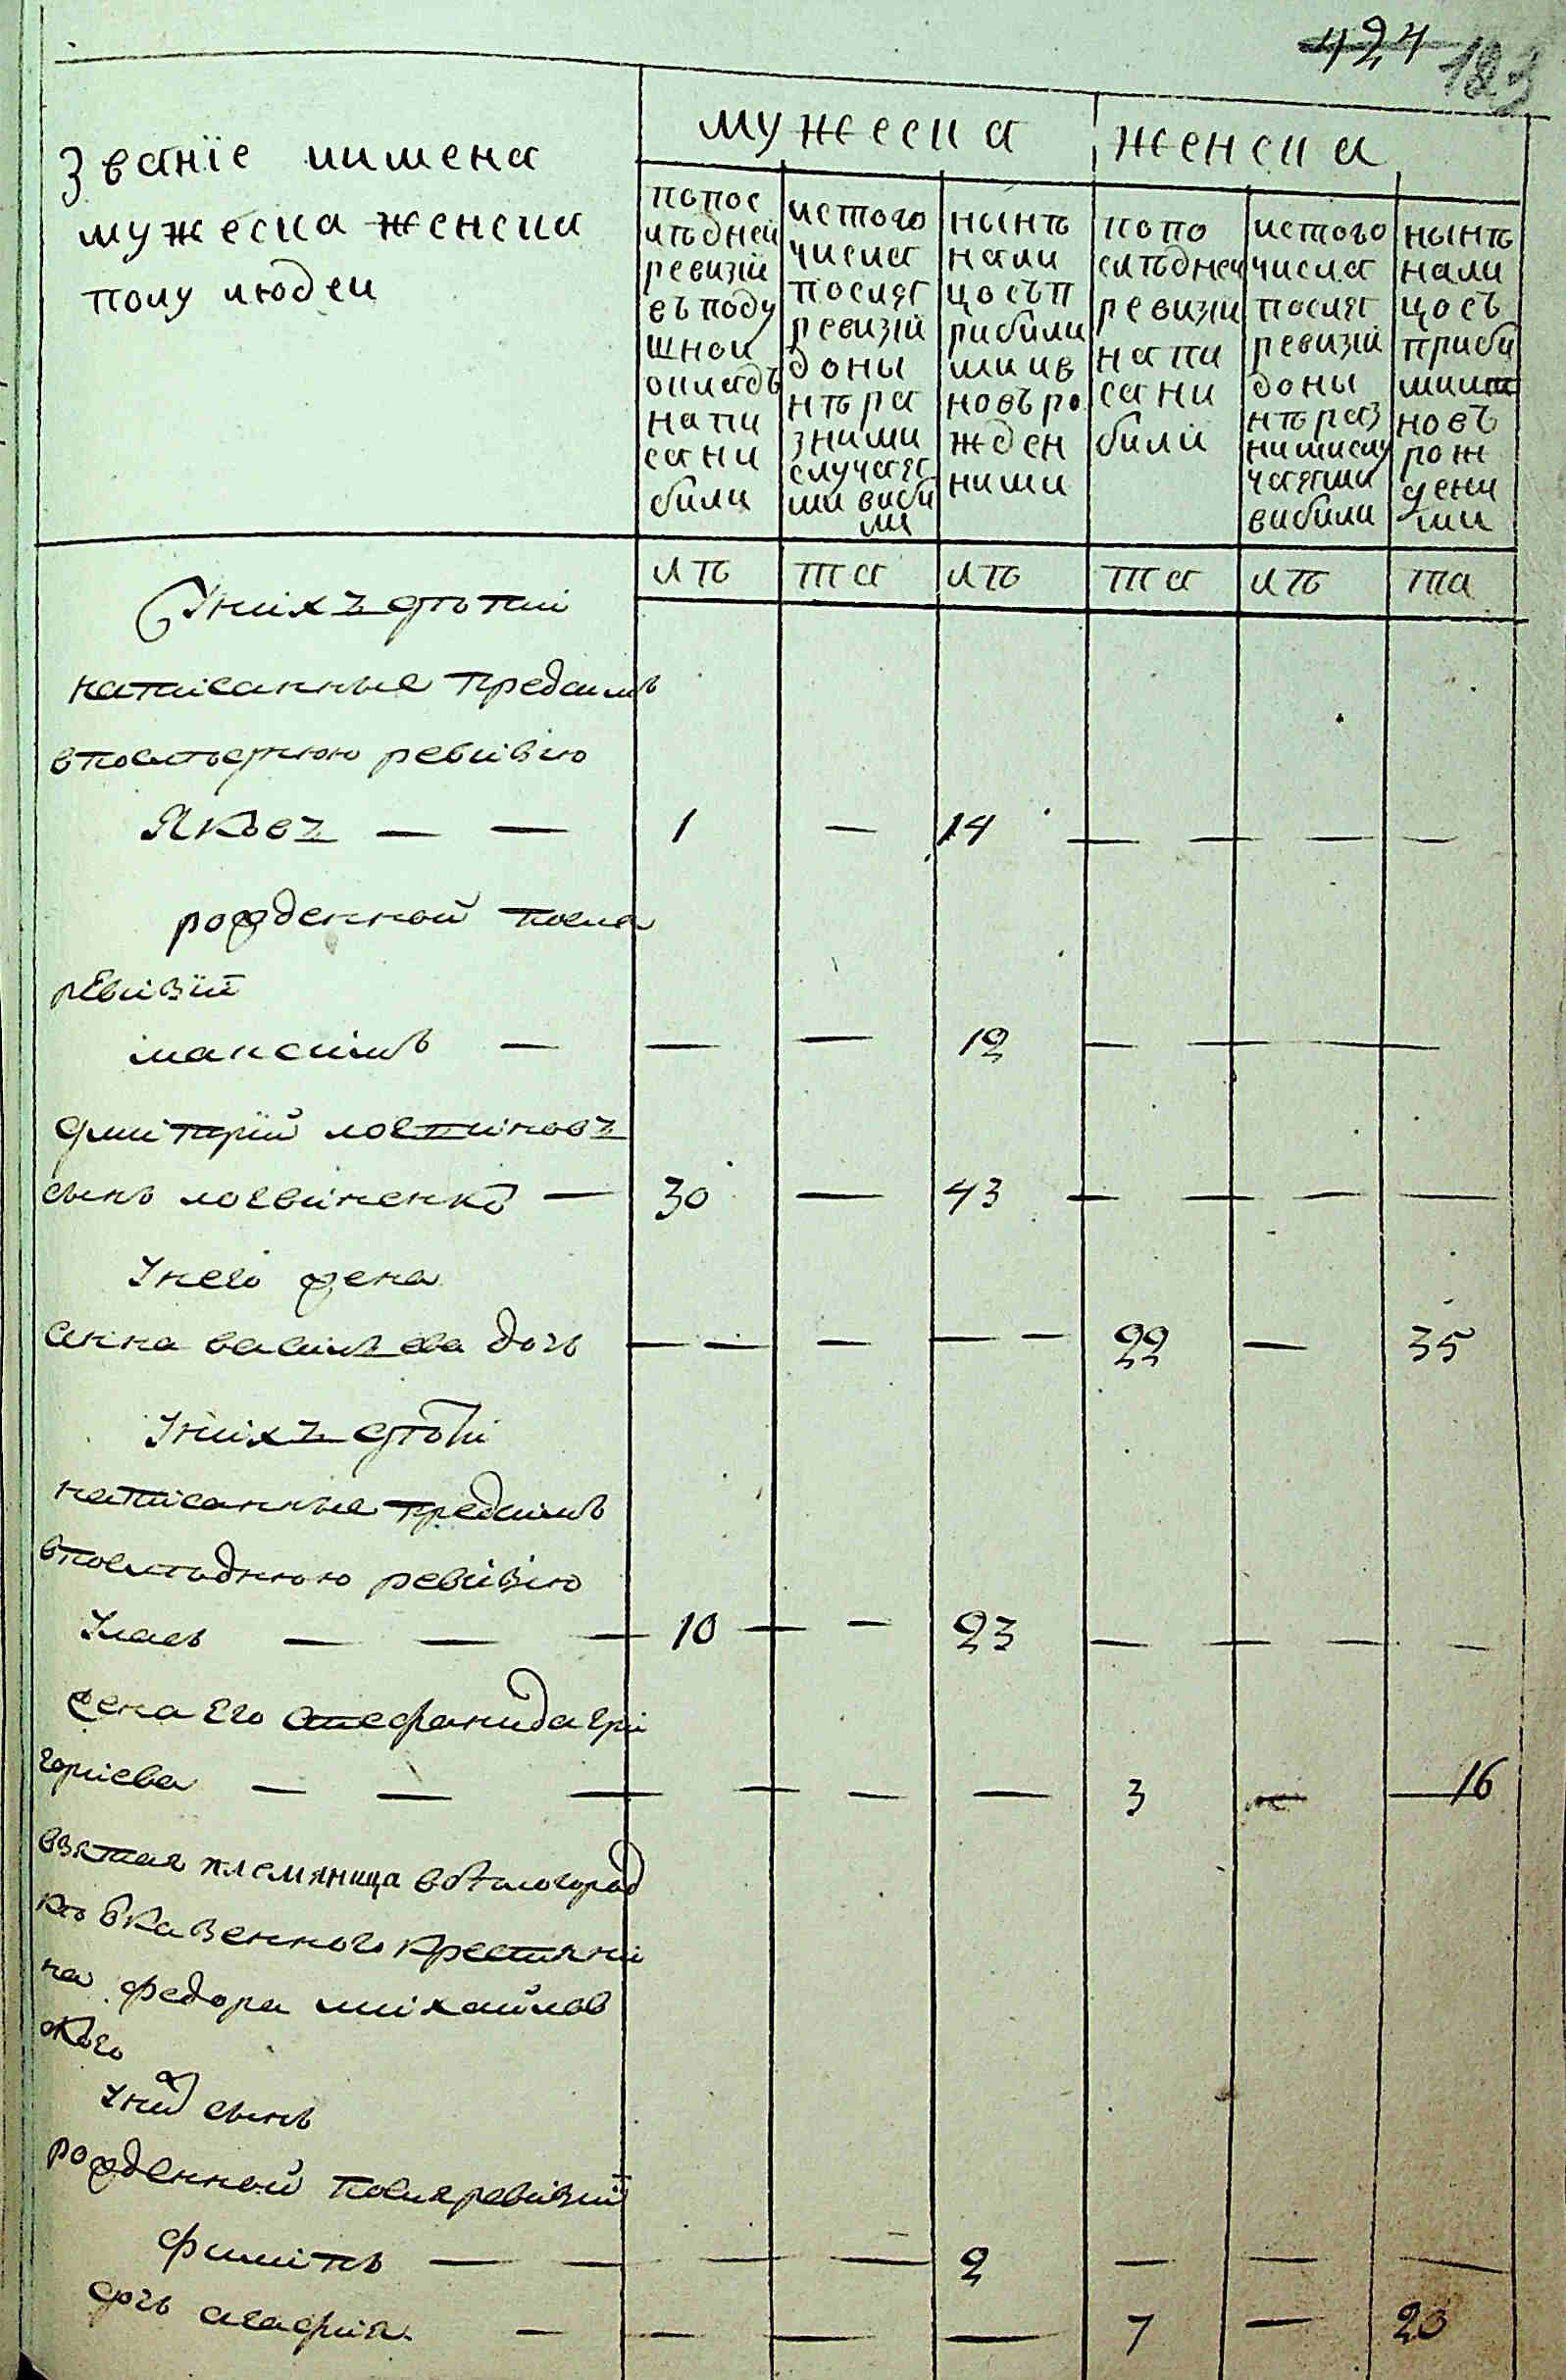 424 183
Званіе иимена
мужеска женска
полу людей
мужеска
женска
попос
лѣдней
ревизіи
въ поду
шной
окладъ
напи
сани
били
истого
числа
посляг
ревизіи
доны
нѣ ра
зними
случаяг
ми виби
ли
нынѣ
нали
цосъ п
рибили
ми ив
новъ ро
жден
ними
попо
слѣдней
ревизіи
напи
сани
били
истого
числа
посляг
ревизіи
доны
нѣ раз
ними слу
чаягми
вибили
нынѣ
нали
цосъ
приби
ми
новъ
рож
дени
ми
лѣ та лѣ та лѣ та
Унихъ дѣти
написанные предсимъ
впослѣднюю ревизію
Яковъ — — 1 — 14 — — — —
рожденной посла
ревизіи
максимъ — — — 12 — — —
дмитрій логвиновъ
сынъ логвиненко — 30 — 43 — — — —
Унего жена
анна василева дочь — — — — — 22 — 35
Унихъ дѣти
написанные предсимъ
впослѣднюю ревизію
Уласъ — — — 10 — — 23 — — — —
жена Его стефанида гри
гориева — — — — — — 3 — — 16
взятая племяница вбѣлогород
ке Вказенного крестяни
на федора михайлов
ского
Уний сынъ
рожденной посляревизіи
филипъ — — — — 2 — — —
дочь агафия — — — — 7 — 20